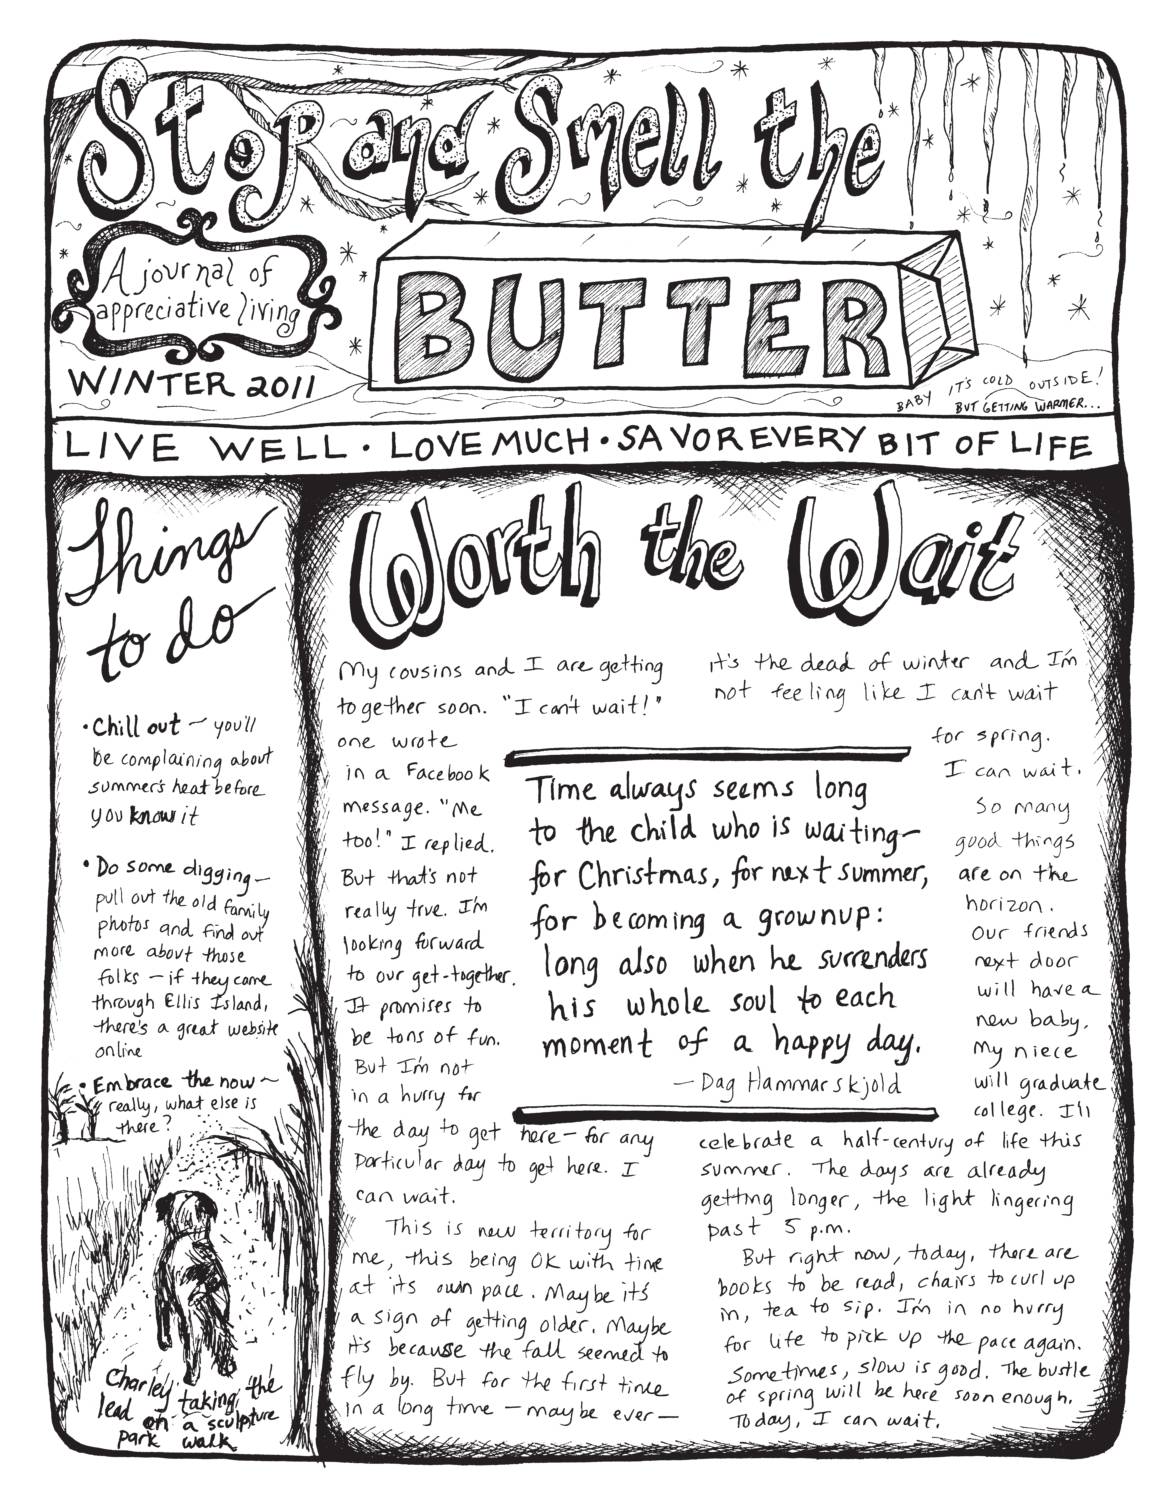 Stop and Smell the
BUTTER
A journal of
appreciative living
WINTER 2011
BABY IT'S COLD OUTSIDE!
BUT GETTING WARMER...
LIVE WELL • LOVE MUCH • SAVOR EVERY BIT OF LIFE
Things
to do
• Chill out ~ you'll
be complaining about
summer's heat before
you know it
• Do some digging —
pull out the old family
photos and find out
more about those
folks — if they came
through Ellis Island,
there's a great website
online
• Embrace the now ~
really, what else is
there?
Charley taking the
lead on a sculpture
park walk
Worth the Wait
My cousins and I are getting
together soon. "I can't wait!"
one wrote
in a Facebook
message. "Me
too!" I replied.
But that's not
really true. I'm
looking forward
to our get-together.
It promises to
be tons of fun.
But I'm not
in a hurry for
the day to get here — for any
particular day to get here. I
can wait.
This is new territory for
me, this being OK with time
at its own pace. Maybe it's
a sign of getting older. Maybe
it's because the fall seemed to
fly by. But for the first time
in a long time — maybe ever —
Time always seems long
to the child who is waiting —
for Christmas, for next summer,
for becoming a grownup:
long also when he surrenders
his whole soul to each
moment of a happy day.
— Dag Hammarskjold
it's the dead of winter and I'm
not feeling like I can't wait
for spring.
I can wait.
So many
good things
are on the
horizon.
Our friends
next door
will have a
new baby.
My niece
will graduate
college. I'll
celebrate a half-century of life this
summer. The days are already
getting longer, the light lingering
past 5 p.m.
But right now, today, there are
books to be read, chairs to curl up
in, tea to sip. I'm in no hurry
for life to pick up the pace again.
Sometimes, slow is good. The bustle
of spring will be here soon enough.
Today, I can wait.